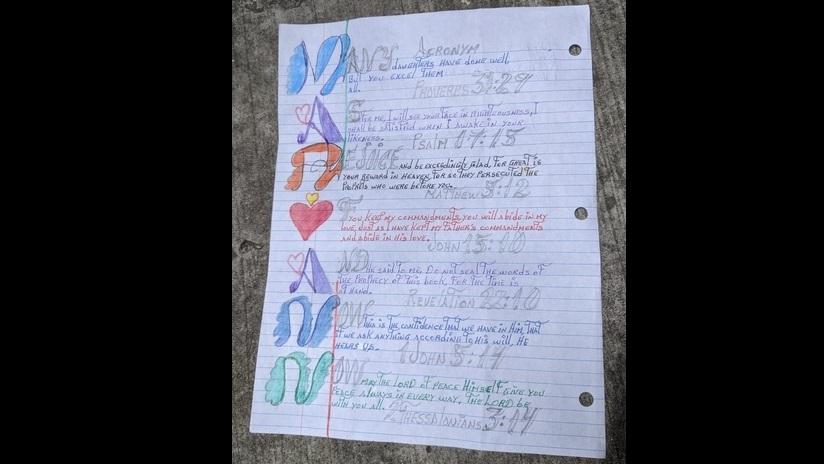 ACRONYM
MANY DAUGHTERS HAVE DONE WELL,
BUT YOU EXCEL THEM
ALL. PROVERBS 31:29
AS FOR ME, I WILL SEE YOUR FACE IN RIGHTEOUSNESS, I
SHALL BE SATISFIED WHEN I AWAKE IN YOUR
LIKENESS. PSALM 17:15
REJOICE AND BE EXCEEDINGLY GLAD, FOR GREAT IS
YOUR REWARD IN HEAVEN, FOR SO THEY PERSECUTED THE
PROPHETS WHO WERE BEFORE YOU.
MATTHEW 5:12
IF YOU KEEP MY COMMANDMENTS, YOU WILL ABIDE IN MY
LOVE, JUST AS I HAVE KEPT MY FATHER'S COMMANDMENTS
AND ABIDE IN HIS LOVE.
JOHN 15:10
AND HE SAID TO ME, DO NOT SEAL THE WORDS OF
THE PROPHECY OF THIS BOOK, FOR THE TIME IS
AT HAND.
REVELATION 22:10
NOW THIS IS THE CONFIDENCE THAT WE HAVE IN HIM, THAT
IF WE ASK ANYTHING ACCORDING TO HIS WILL, HE
HEARS US.
1 JOHN 5:14
NOW MAY THE LORD OF PEACE HIMSELF GIVE YOU
PEACE ALWAYS IN EVERY WAY. THE LORD BE
WITH YOU ALL.
THESSALONIANS 3:14